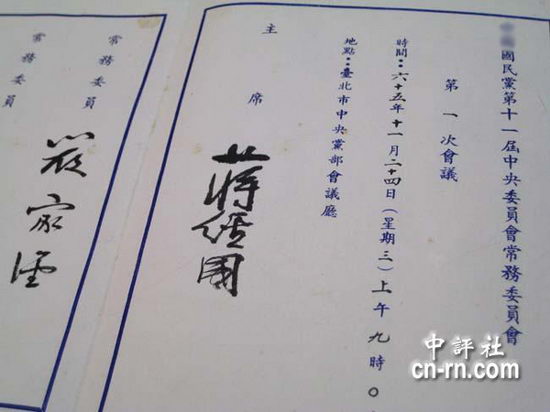 國民黨第十一屆中央委員會常務委員會
第一次會議
時間：六十五年十一月二十四日（星期三）上午九時。
地點：臺北市中央黨部會議廳
主席
蔣經國
常務委員
嚴家淦
常務委員
中評社
cn-rn.com